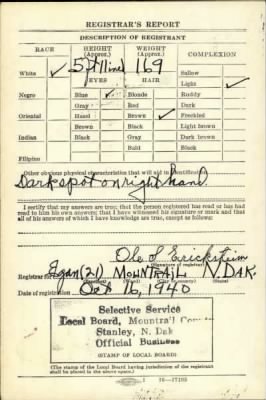 REGISTRAR'S REPORT
DESCRIPTION OF REGISTRANT
RACE HEIGHT (Approx.) WEIGHT (Approx.) COMPLEXION
White ✓ 5 ft 11 in 169 Sallow
EYES HAIR Light ✓
Negro Blue ✓ Blonde Ruddy
Gray Red Dark
Oriental Hazel Brown ✓ Freckled
Brown Black Light brown
Indian Black Gray Dark brown
Bald Black
Filipino
Other obvious physical characteristics that will aid in identification
Dark spot on right hand
I certify that my answers are true; that the person registered has read or has had
read to him his own answers; that I have witnessed his signature or mark and that
all of his answers of which I have knowledge are true, except as follows:
Ole S. Erickstein
(Signature of registrar)
Registrar for Egan (21) MOUNTRAIL N. DAK.
Date of registration Oct 16, 1940
Selective Service
Local Board, Mountra'l
Stanley, N. Dak
Official Business
(STAMP OF LOCAL BOARD)
(The stamp of the Local Board having jurisdiction of the registrant
shall be placed in the above space.)